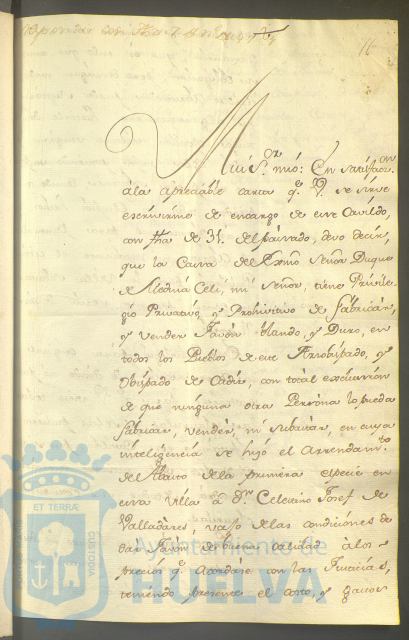 Respondida con fha 7 de
16
Mui S.or mio: En satisfaz.on
ála apreciable carta q.e V. se sirve
escrivirme de encargo de ese Cavildo,
con fha de 31. del pasado, devo decir,
que la Casa del Exmo Señor Duque
de Medina Celi, mi Señor, tiene Privile-
gio Privativo, y Prohivitivo de fabricar,
y vender Javon blando, y Duro, en
todos los Pueblos de este Arzobispado, y
Obispado de Cadiz, con total exclusion
de que ninguna otra Persona lo pueda
fabricar, vender, ni subastar, en cuya
inteligencia se hizo el Arrendam.to
del Abasto de la primera especie en
esa Villa á D.n Celestino Josef de
Valladares, vajo de las condiciones de
dar Javon de buena calidad álos
precios q.e Acordase con las Justicias,
teniendo presente el costo, y gastos
ET TERRÆ
CUSTODIA
Ayuntamiento de
HUELVA